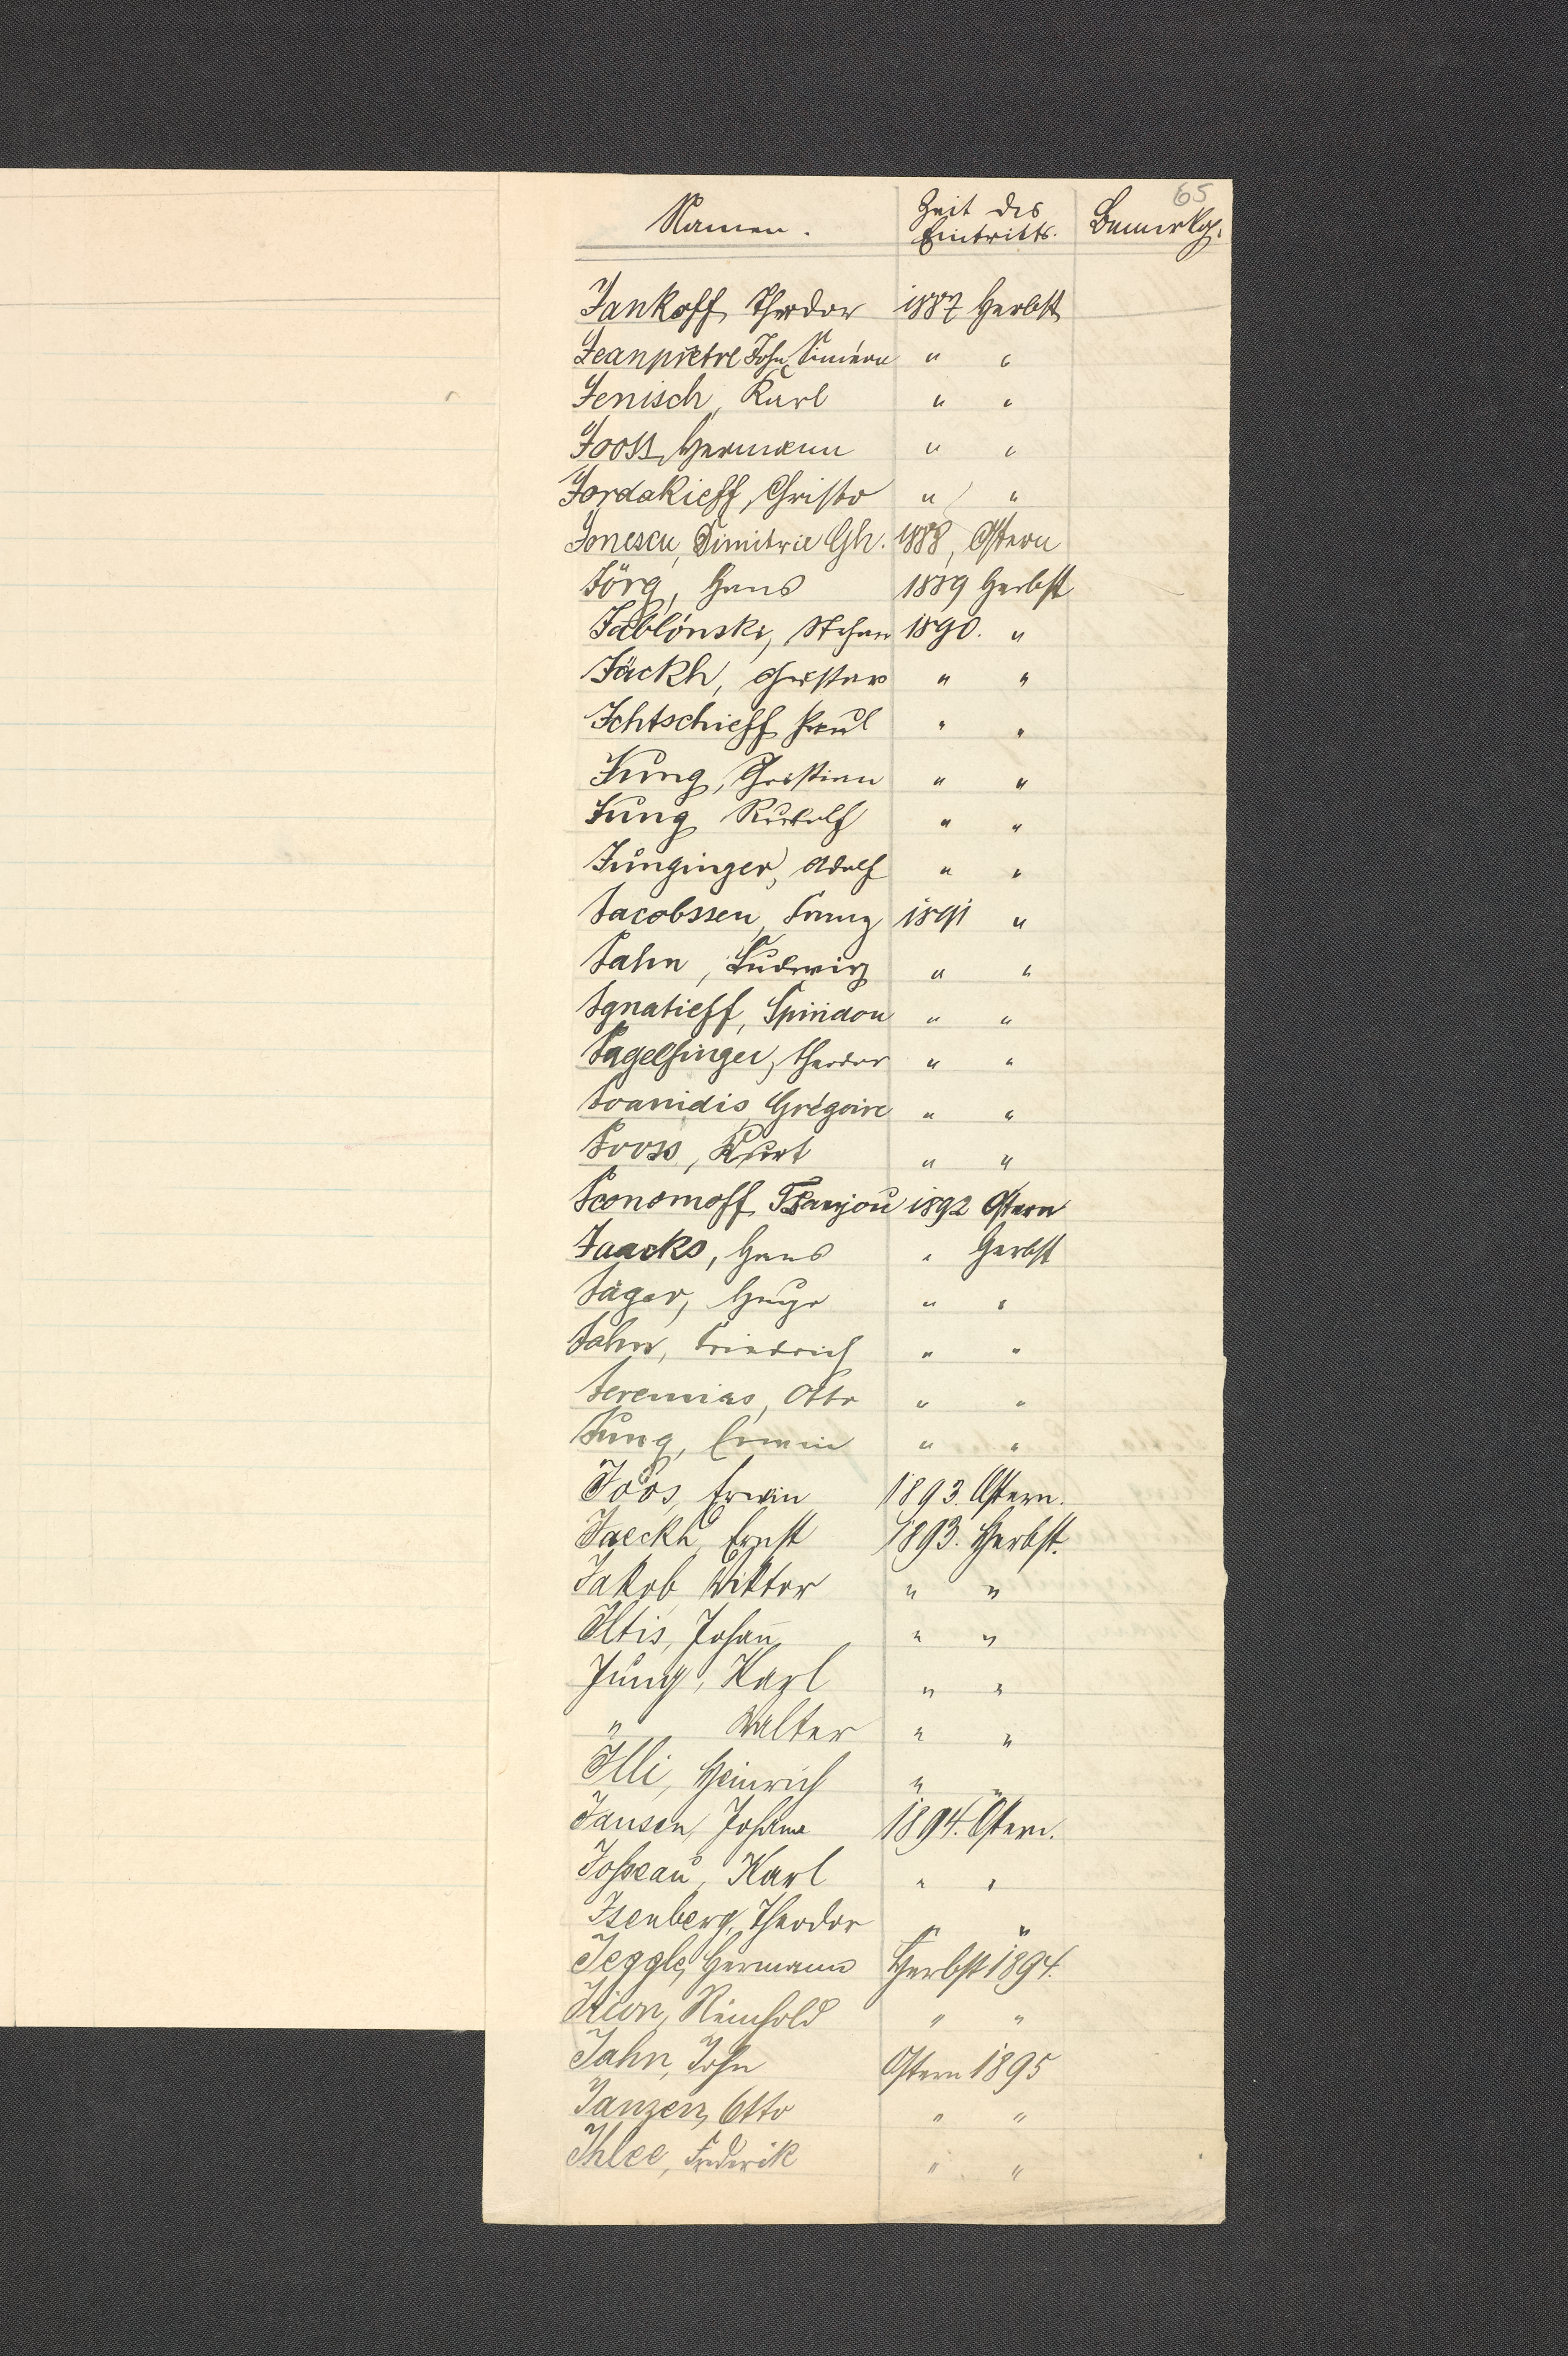 65
Namen. Zeit des Eintritts. Bemerkg.
Jankoff, Theodor 1887 Herbst
Jeanprêtre John, Siméon " "
Jenisch, Karl " "
Jooss, Hermann " "
Jordakieff, Christo " "
Jonescu, Dimitrie Gh. 1888, Ostern
Jörg, Hans 1889 Herbst
Jablónski, Stefan 1890. "
Jäckh, Gustav " "
Ichtschieff Paul " "
Jung, Christian " "
Jung Rudolf " "
Junginger, Adolf " "
Jacobssen, Franz 1891 "
Jahn, Ludwig " "
Ignatieff, Spiridon " "
Theodor " "
Joanidis Grégoire " "
Jooss, Kurt " "
Iconomoff, 1892 Ostern
Jaacks, Hans " Herbst
Jäger, Hugo " "
Jahn, Friedrich " "
Jeremias, Otto " "
Jung, Erwin " "
Joos, Erwin 1893. Ostern.
Jaeckh, Ernst 1893. Herbst.
Jakob, Viktor " "
Iltis, Johan̅ " "
Jung, Karl " "
" Walter " "
Illi, Heinrich " "
Jansen, Johann 1894. Ostern.
Karl " "
Isenberg, Theodor " "
Jeggle, Hermann Herbst 1894.
Irion, Reinhold " "
Jahn, John Ostern 1895
Janzen, Otto " "
Ihlee, Frederik " "